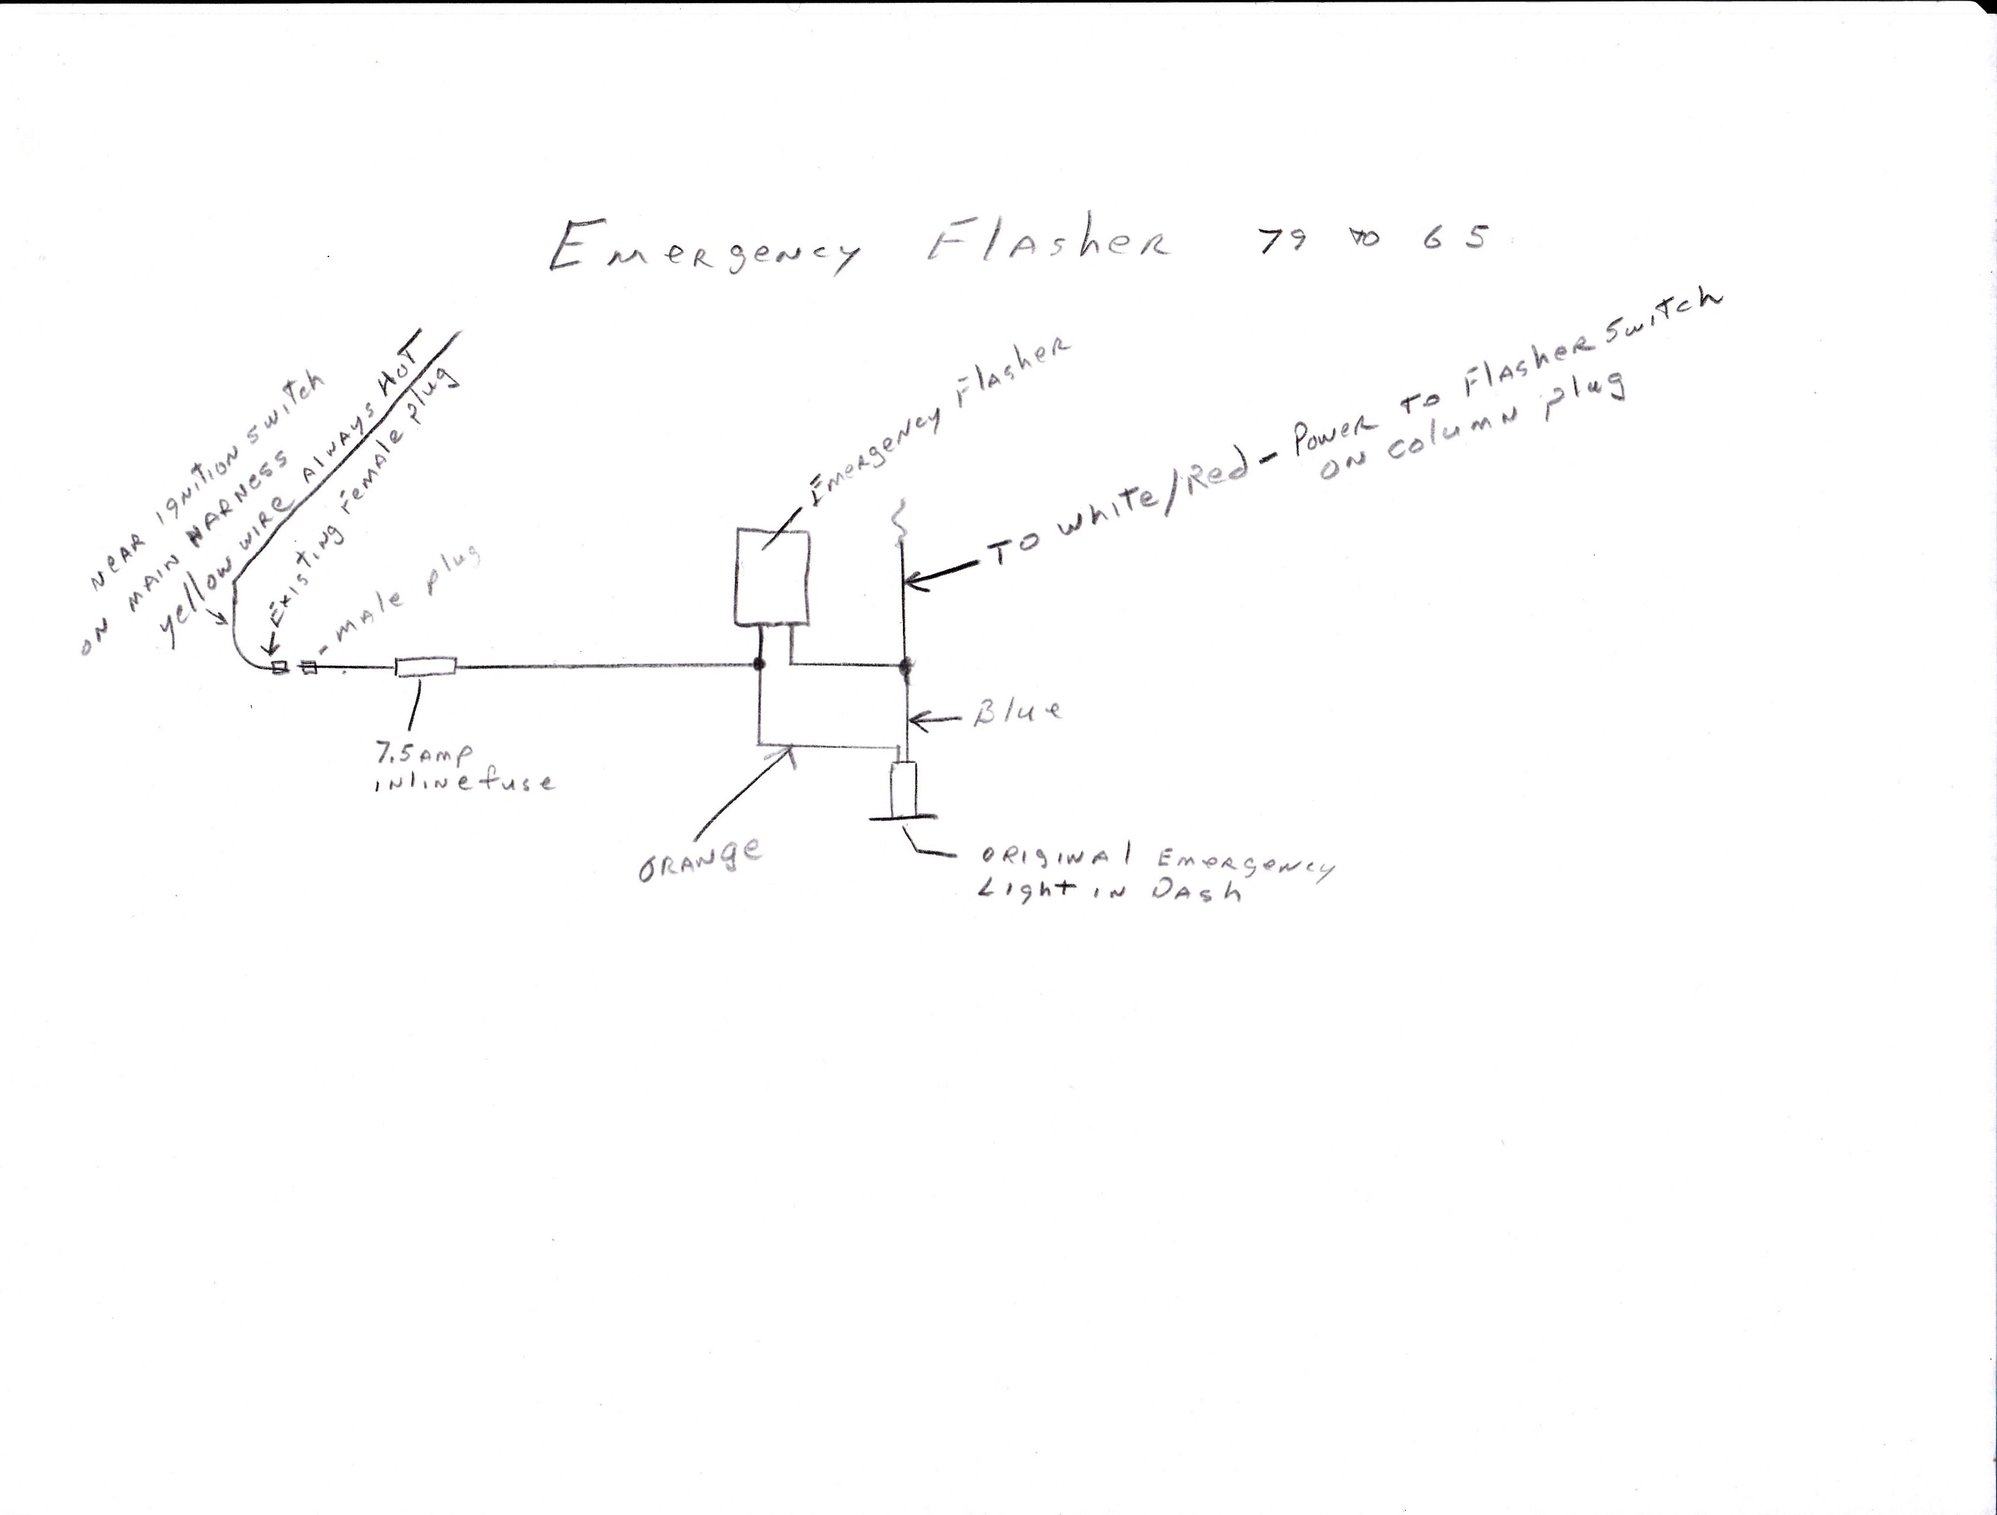 Emergency Flasher 79 to 65
Near ignition switch
on main harness
yellow wire always hot
Existing female plug
- male plug
Emergency Flasher
To White/Red - Power to Flasher Switch
on column plug
Blue
7.5 amp
inline fuse
Orange
Original Emergency
Light in Dash